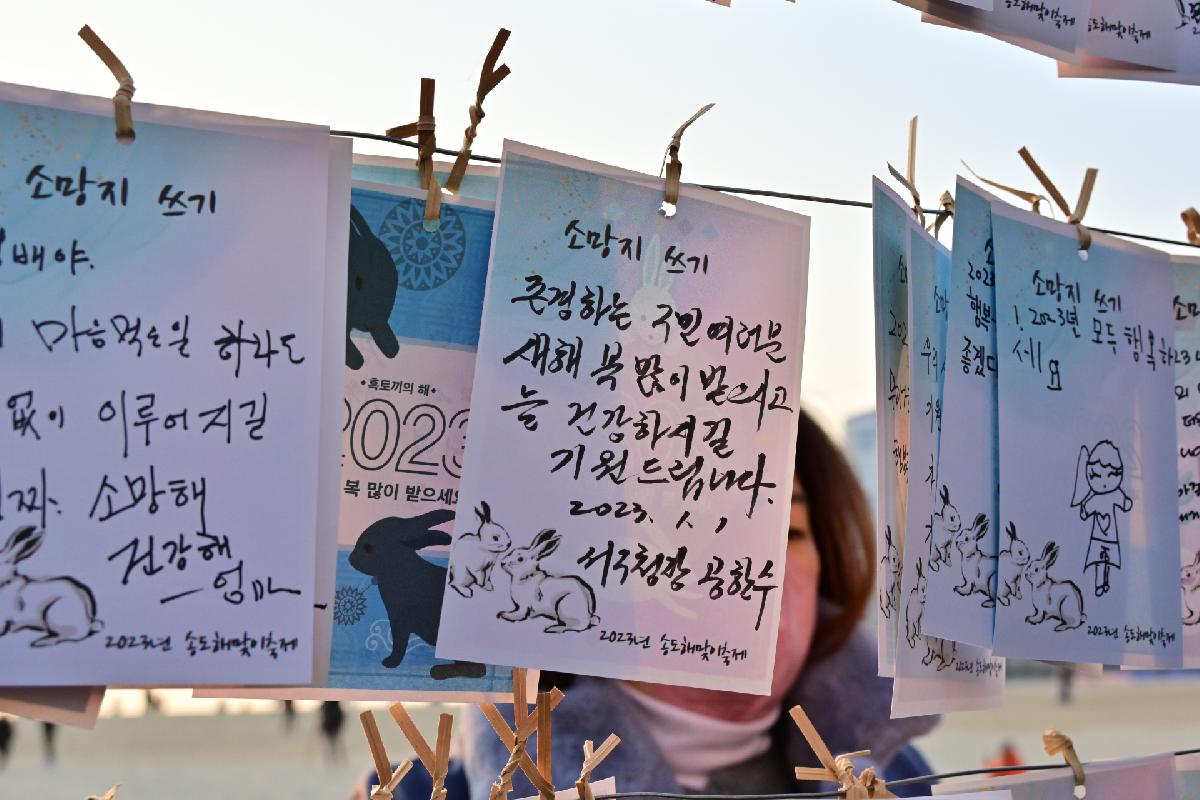 소망지 쓰기
배야.
마음먹은일 하라도
이 이루어지길
소망해
건강해
엄마
2023년 송도해맞이축제
흑토끼의 해
2023
복 많이 받으세요
소망지 쓰기
존경하는 구민여러분
새해 복 많이 받으시고
늘 건강하시길
기원드립니다.
2023. 1. 1
서구청장 공한수
2023년 송도해맞이축제
소망지 쓰기
! 2023년 모두 행복하
세요
2023년 송도해맞이축제
2023
행복
좋겠다
송도해맞이축제
송도해맞이축제